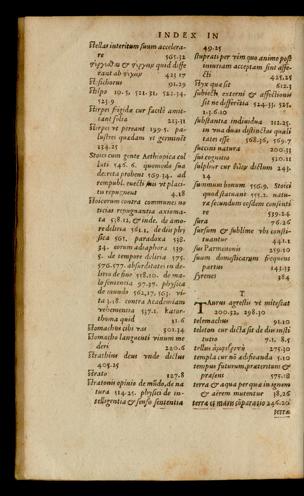 INDEX IN
Stellas interitum suum accelera-
re 565.32
rant ab 425 17
Stesichorus 91.29
Stilpo 19.5, 521.31, 522.14.
525.9
Stirpes frigida cur facile amit-
tant folia 213.11
Stirpes ut pereant 199.5. pa-
lustres quædam ut germinent
254.25
Stoici cum gente Aethiopica col
lati 146.6. quomodo sua
decreta probent 169.14. ad
rempubl. euecti suis ut placi-
tis repugnent 4.18
Stoicorum contra communes no
ticias repugnantia axioma-
ta 518.12, & inde. de amo-
re deliria 561.1. de diis phy
sica 561. paradoxa 518.
34. eorum adiaphora 539
5. de tempore deliria 575.
576.577. absurditates in de-
liriis de fine 518.10. de ma-
lo sententia 97.37. physica
de mundo 562,17, 563. vi-
ta 3.18. contra Academiam
vehementia 537.1. kator-
thoma quid 31.6
Stomachus cibi vas 501.34
Stomacho languenti vinum me
deri 220.6
Strathius deus vnde dictus
405.25
Strato 127.8
Stratonis opinio de mũdo, de na
tura 514.25. physici de in-
telligentia & sensu sententia
49.25
stuprati per vim quo animo post
iniuriam acceptam sint affe-
cti 425.25
Styx quæ sit 612.3
subiecti externi & affectionis
sit ne differentia 524.33, 525.
1.5.6.10
substantia indiuidua 112.25.
in vna duas distinctas quali
tates esse 568.36, 569.7
succini natura 200.33
sui cognitio 520.11
sulphur cur dictum 243.
24
summum bonum 556.9. Stoici
quod statuant 555.2. natu-
ra secundum eosdem consenti
re 539.24
76.26
sursum & sublime vbi consti-
tuantur 441.2
sus Parmeonis 259.10
suum domesticarum frequens
partus 143.33
syrenes 384
T
TAurus agrestis vt mitescat
200.32, 298.30
telemachus 91.10
teleton cur dicta sit de diis insti
tutio 7.1, 8.5
tellus 275.30
templa cur nõ adificanda 5.10
tempus futurum, prateritum &
præsens 575.18
terra & aqua per qua in ignem
& aerem mutentur 38,26
terra et maris cõparatio 246.20
terræ